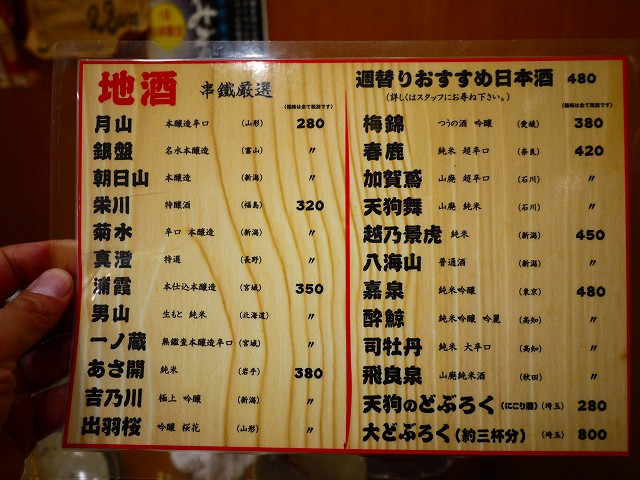 地酒 串鐵厳選
(価格は全て税別です)
月山 本醸造辛口 (山形) 280
銀盤 名水本醸造 (富山) 〃
朝日山 本醸造 (新潟) 〃
栄川 特醸酒 (福島) 320
菊水 辛口 本醸造 (新潟) 〃
真澄 特選 (長野) 〃
浦霞 本仕込本醸造 (宮城) 350
男山 生もと 純米 (北海道) 〃
一ノ蔵 無鑑査本醸造辛口 (宮城) 〃
あさ開 純米 (岩手) 380
吉乃川 極上 吟醸 (新潟) 〃
出羽桜 吟醸 桜花 (山形) 〃
週替りおすすめ日本酒 480
(詳しくはスタッフにお尋ね下さい。)
(価格は全て税別です)
梅錦 つうの酒 吟醸 (愛媛) 380
春鹿 純米 超辛口 (奈良) 420
加賀鳶 山廃 超辛口 (石川) 〃
天狗舞 山廃 純米 (石川) 〃
越乃景虎 純米 (新潟) 450
八海山 普通酒 (新潟) 〃
嘉泉 純米吟醸 (東京) 480
酔鯨 純米吟醸 吟麗 (高知) 〃
司牡丹 純米 大辛口 (高知) 〃
飛良泉 山廃純米酒 (秋田) 〃
天狗のどぶろく (にごり酒) (埼玉) 280
大どぶろく (約三杯分) (埼玉) 800